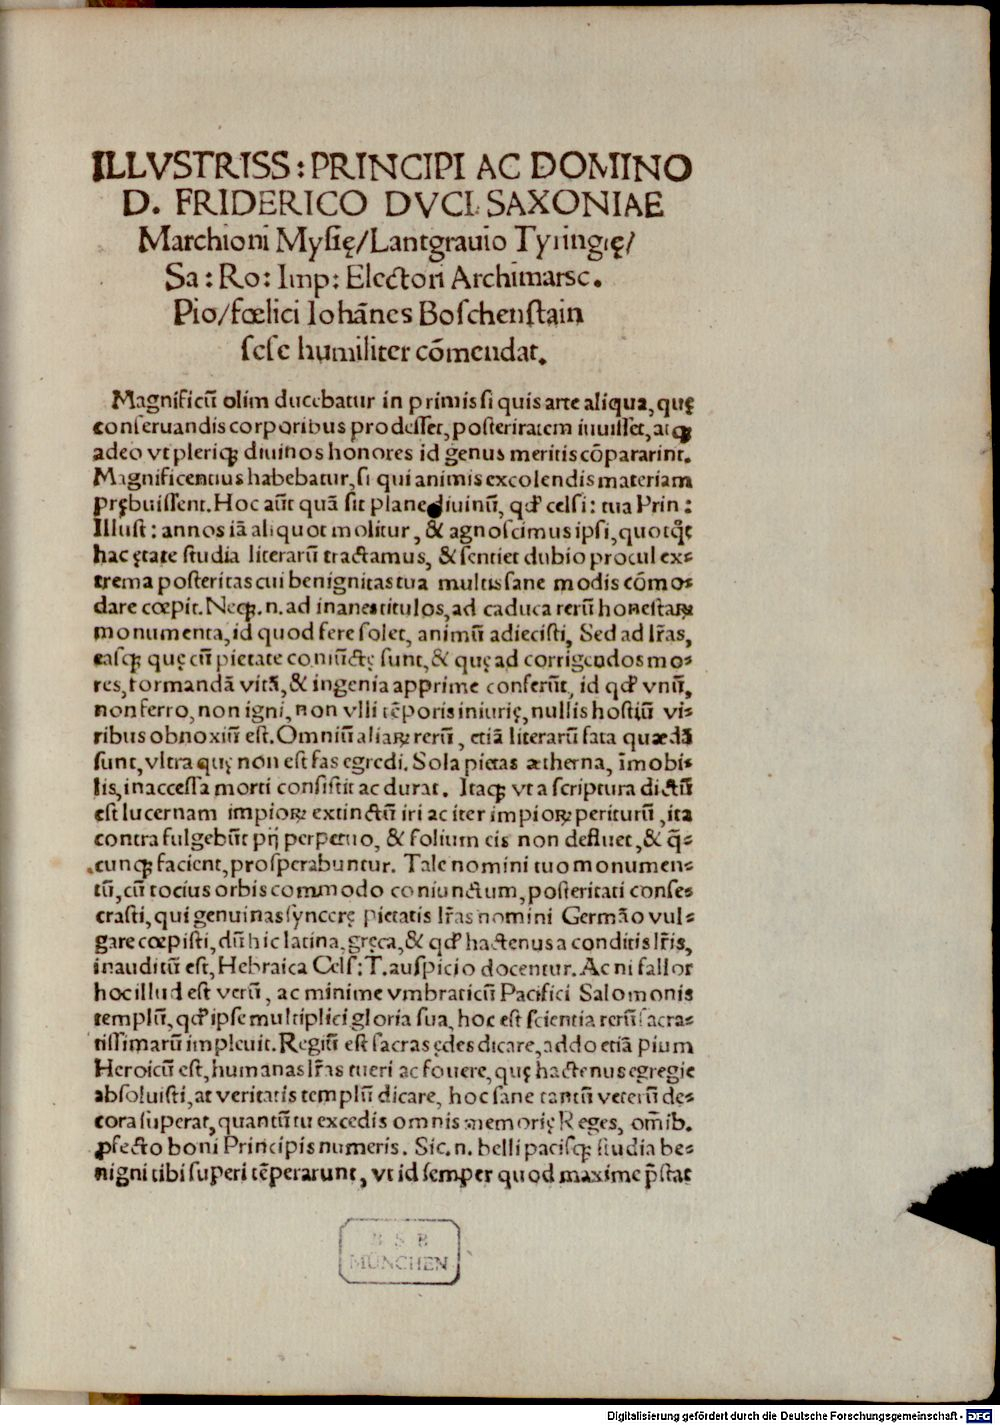 ILLVSTRISS: PRINCIPI AC DOMINO
D. FRIDERICO DVCI SAXONIAE
Marchioni Mysię/Lantgrauio Tyringię/
Sa: Ro: Imp: Electori Archimarsc.
Pio/fœlici Iohãnes Boſchenſtain
ſeſe humiliter cõmendat.
Magnificũ olim ducebatur in primis ſi quis arte aliqua, quę
conſeruandis corporibus prodeſſet, poſteritatem iuuiſſet, atq;
adeo vt pleriq; diuinos honores id genus meritis cõpararint.
Magnificentius habebatur, ſi qui animis excolendis materiam
prębuiſſent. Hoc aũt quã ſit plane diuinũ, qđ celſi: tua Prin:
Illuſt: annos iã aliquot molitur, & agnoſcimus ipſi, quotq̃t
hac ętate ſtudia literarũ tractamus, & ſentiet dubio procul ex-
trema poſteritas cui benignitas tua multis ſane modis cõmo-
dare cœpit. Neq;. n. ad inanes titulos, ad caduca rerũ honeſtaꝝ
monumenta, id quod fere ſolet, animũ adieciſti, Sed ad lr̃as,
easq; quę cũ pietate coniũctę ſunt, & quę ad corrigendos mo-
res, formandã vitã, & ingenia apprime conferũt, id qđ vnũ,
non ferro, non igni, non vlli tẽporis iniurię, nullis hoſtiũ vi-
ribus obnoxiũ eſt. Omniũ aliaꝝ rerũ, etiã literarũ fata quædã
ſunt, vltra quę non eſt fas egredi. Sola pietas ætherna, ĩmobi-
lis, inacceſſa morti conſiſtit ac durat. Itaq; vt a ſcriptura dictũ
eſt lucernam impioꝝ extinctũ iri ac iter impioꝝ periturũ, ita
contra fulgebũt pij perpetuo, & folium eis non defluet, & q̃-
cunq; facient, proſperabuntur. Tale nomini tuo monumen-
tũ, cũ tocius orbis commodo coniunctum, poſteritati conſe-
craſti, qui genuinas ſyncerę pietatis lr̃as nomini Germão vul-
gare cœpiſti, dũ hic latina, gręca, & qđ hactenus a conditis lr̃is,
inauditũ eſt, Hebraica Celſ: T. auſpicio docentur. Ac ni fallor
hoc illud eſt verũ, ac minime vmbraticũ Pacifici Salomonis
templũ, qđ ipſe multiplici gloria ſua, hoc eſt ſcientia rerũ ſacra-
tiſſimarũ impleuit. Regiũ eſt ſacras ędes dicare, addo etiã pium
Heroicũ eſt, humanas lr̃as tueri ac fouere, quę hactenus egregie
abſoluiſti, at veritatis templũ dicare, hoc ſane tantũ veterũ de-
cora ſuperat, quantũ tu excedis omnis memorię Reges, om̃ib.
ꝓfecto boni Principis numeris. Sic. n. belli pacisq; ſtudia be-
nigni tibi ſuperi tẽperarunt, vt id ſemper quod maxime p̃ſtat
B S B
MÜNCHEN
Digitalisierung gefördert durch die Deutsche Forschungsgemeinschaft - DFG